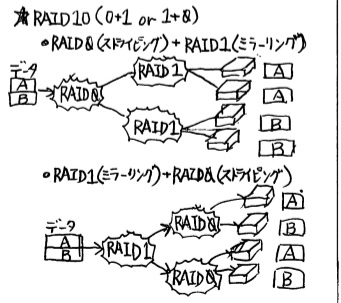 ★RAID10(0+1 or 1+0)
•RAID0(ストライピング)+RAID1(ミラーリング)
データ
A
B
RAID0
RAID1
RAID1
A
A
B
B
•RAID1(ミラーリング)+RAID0(ストライピング)
データ
A
B
RAID1
RAID0
RAID0
A
B
A
B